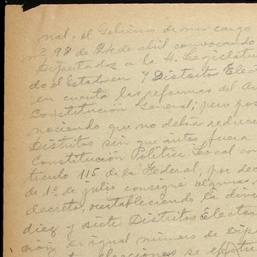 nal, el Gobierno de mi cargo
nº 98 de 24 de abril convocando
Diputados a la H. Legislat
do el Estado en 7 Distritos Elec
en cuenta las reformas del A
Constitución General; pero pos
nociendo que no debía reducir
Distritos sin que antes fuera
Constitución Política Local con
tículo 115 de la Federal, por dec
de 1º de julio consigné algunas
decreto, restableciendo la divi
diez y siete Distritos Elector
igual número de Dip
elecciones se